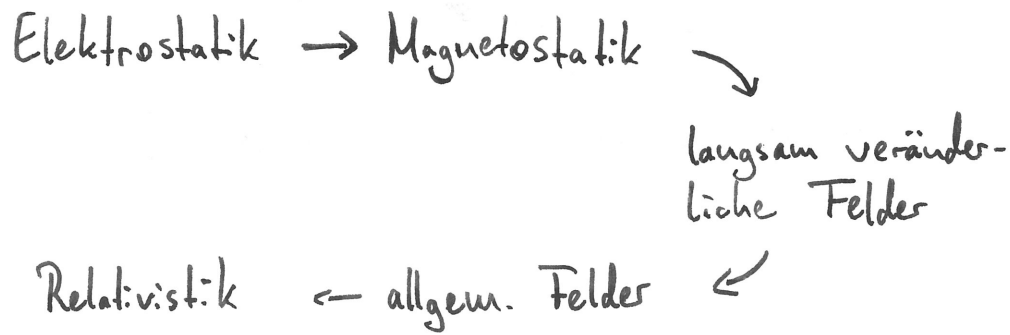 Elektrostatik → Magnetostatik
langsam veränder-
liche Felder
Relativistik ← allgem. Felder